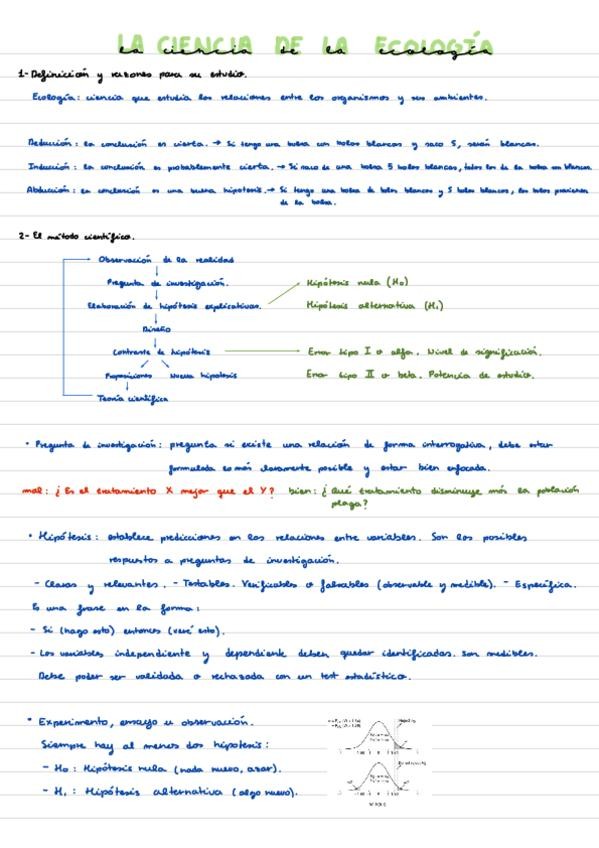 LA CIENCIA DE LA ECOLOGÍA
la ciencia de la ecología
1- Definición y razones para su estudio.
Ecología: ciencia que estudia las relaciones entre los organismos y sus ambientes.
Deducción: la conclusión es cierta. → Si tengo una bolsa con bolas blancas y saco 5, serán blancas.
Inducción: la conclusión es probablemente cierta. → Si saco de una bolsa 5 bolas blancas, todas las de la bolsa son blancas.
Abducción: la conclusión es una buena hipótesis. → Si tengo una bolsa de bolas blancas y 5 bolas blancas, las bolas provienen
de la bolsa.
2- El método científico.
Observación de la realidad
Pregunta de investigación.
Hipótesis nula (H0)
Elaboración de hipótesis explicativas.
Hipótesis alternativa (H1)
Diseño
Contraste de hipótesis
Error tipo I o alfa. Nivel de significación.
Proposiciones Nueva hipótesis
Error tipo II o beta. Potencia de estudio.
Teoría científica
• Pregunta de investigación: pregunta si existe una relación de forma interrogativa, debe estar
formulada lo más claramente posible y estar bien enfocada.
mal: ¿Es el tratamiento X mejor que el Y? bien: ¿Qué tratamiento disminuye más la población
plaga?
• Hipótesis: establece predicciones en las relaciones entre variables. Son las posibles
respuestas a preguntas de investigación.
- Claras y relevantes. - Testables. Verificables o falsables (observable y medible). - Específica.
Es una frase en la forma:
- Si (hago esto) entonces (veré esto).
- Las variables independiente y dependiente deben quedar identificadas. Son medibles.
Debe poder ser validada o rechazada con un test estadístico.
• Experimento, ensayo u observación.
Siempre hay al menos dos hipótesis:
- H0: Hipótesis nula (nada nuevo, azar).
- H1: Hipótesis alternativa (algo nuevo).